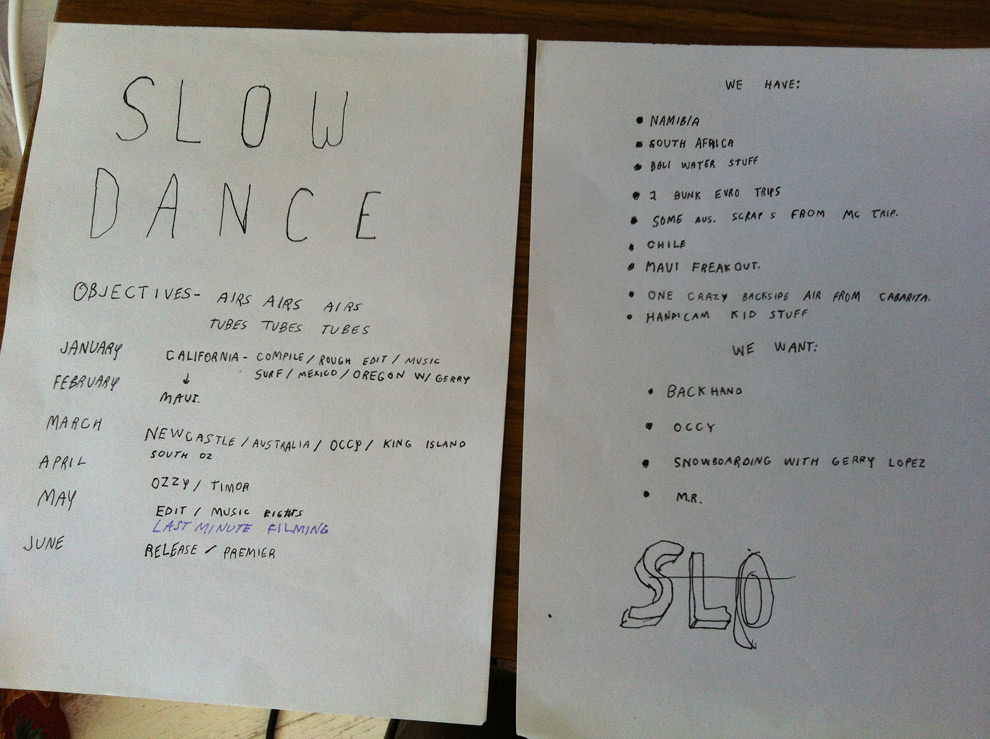 SLOW
DANCE
OBJECTIVES- AIRS AIRS AIRS
TUBES TUBES TUBES
JANUARY CALIFORNIA - COMPILE / ROUGH EDIT / MUSIC
SURF / MEXICO / OREGON W/ GERRY
FEBRUARY ↓
MAUI.
MARCH NEWCASTLE / AUSTRALIA / OCCY / KING ISLAND
SOUTH OZ
APRIL OZZY / TIMOR
MAY EDIT / MUSIC RIGHTS
LAST MINUTE FILMING
JUNE RELEASE / PREMIER
WE HAVE:
• NAMIBIA
• SOUTH AFRICA
• BALI WATER STUFF
• 2 BUNK EURO TRIPS
• SOME AUS. SCRAPS FROM MC TRIP.
• CHILE
• MAUI FREAKOUT.
• ONE CRAZY BACKSIDE AIR FROM CABARITA.
• HANDICAM KID STUFF
WE WANT:
• BACKHAND
• OCCY
• SNOWBOARDING WITH GERRY LOPEZ
• M.R.
SLO